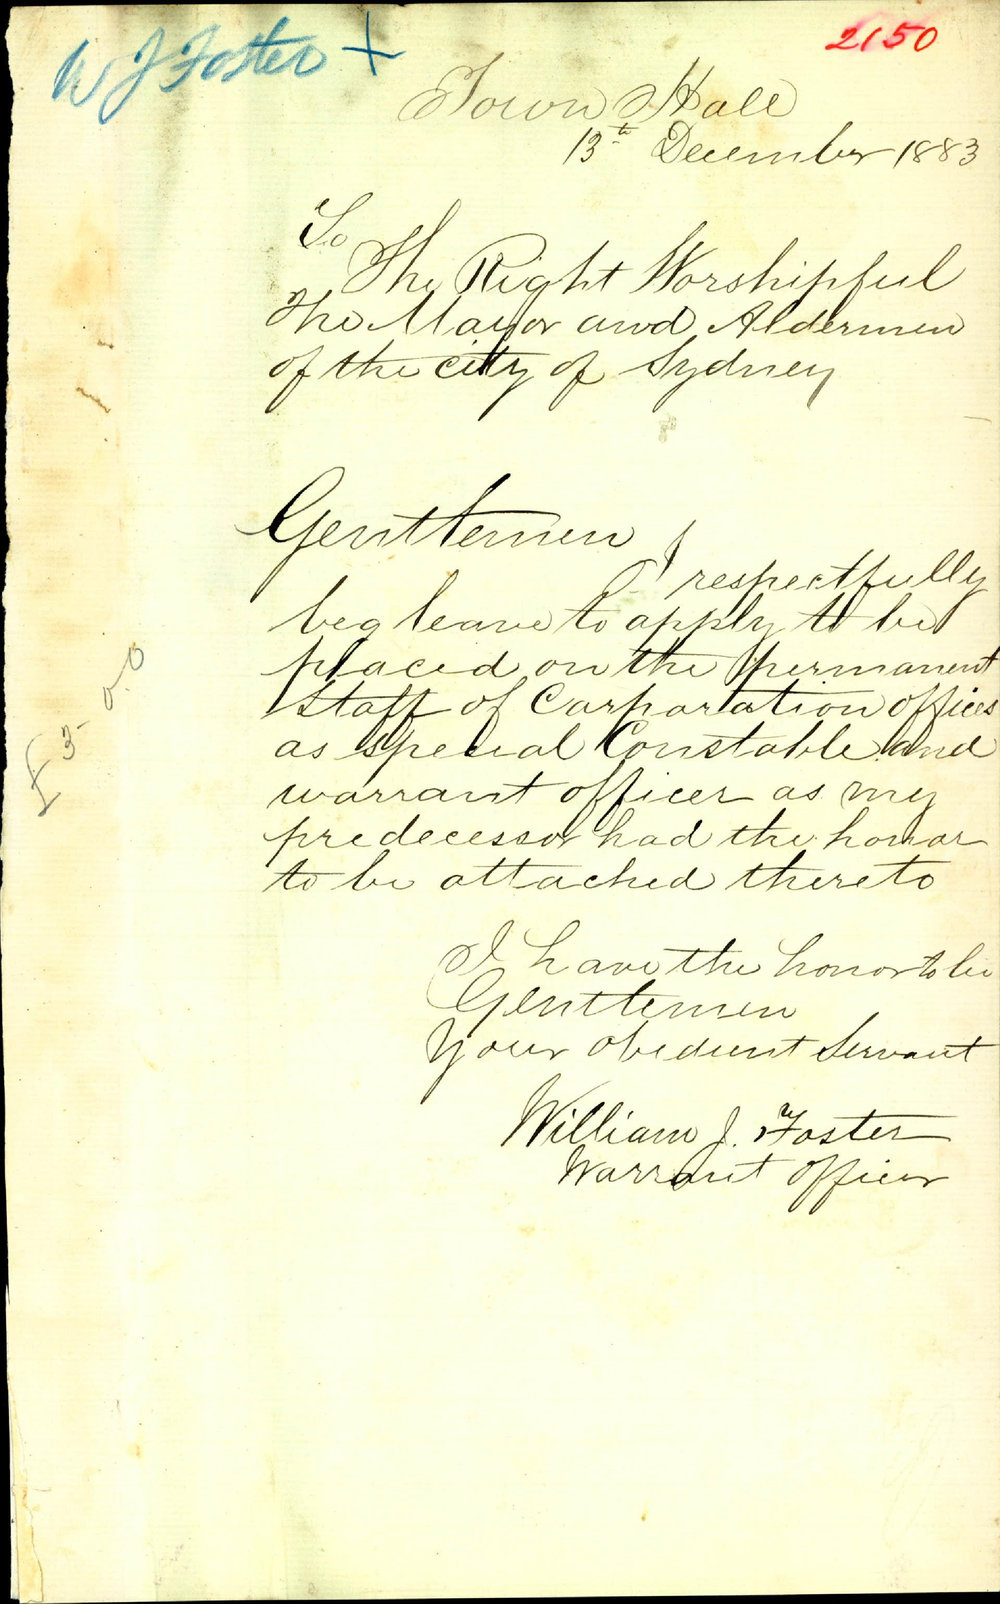 W J Foster +
2150
Town Hall
13th December 1883
To
The Right Worshipful
The Mayor and Aldermen
of the city of Sydney
Gentlemen
I respectfully
beg leave to apply to be
placed on the permanent
staff of Corporation offices
as special Constable and
warrant officer as my
predecessor had the honor
to be attached thereto
I have the honor to be
Gentlemen
Your obedient Servant
William J. Foster
Warrant officer
£3-0.0